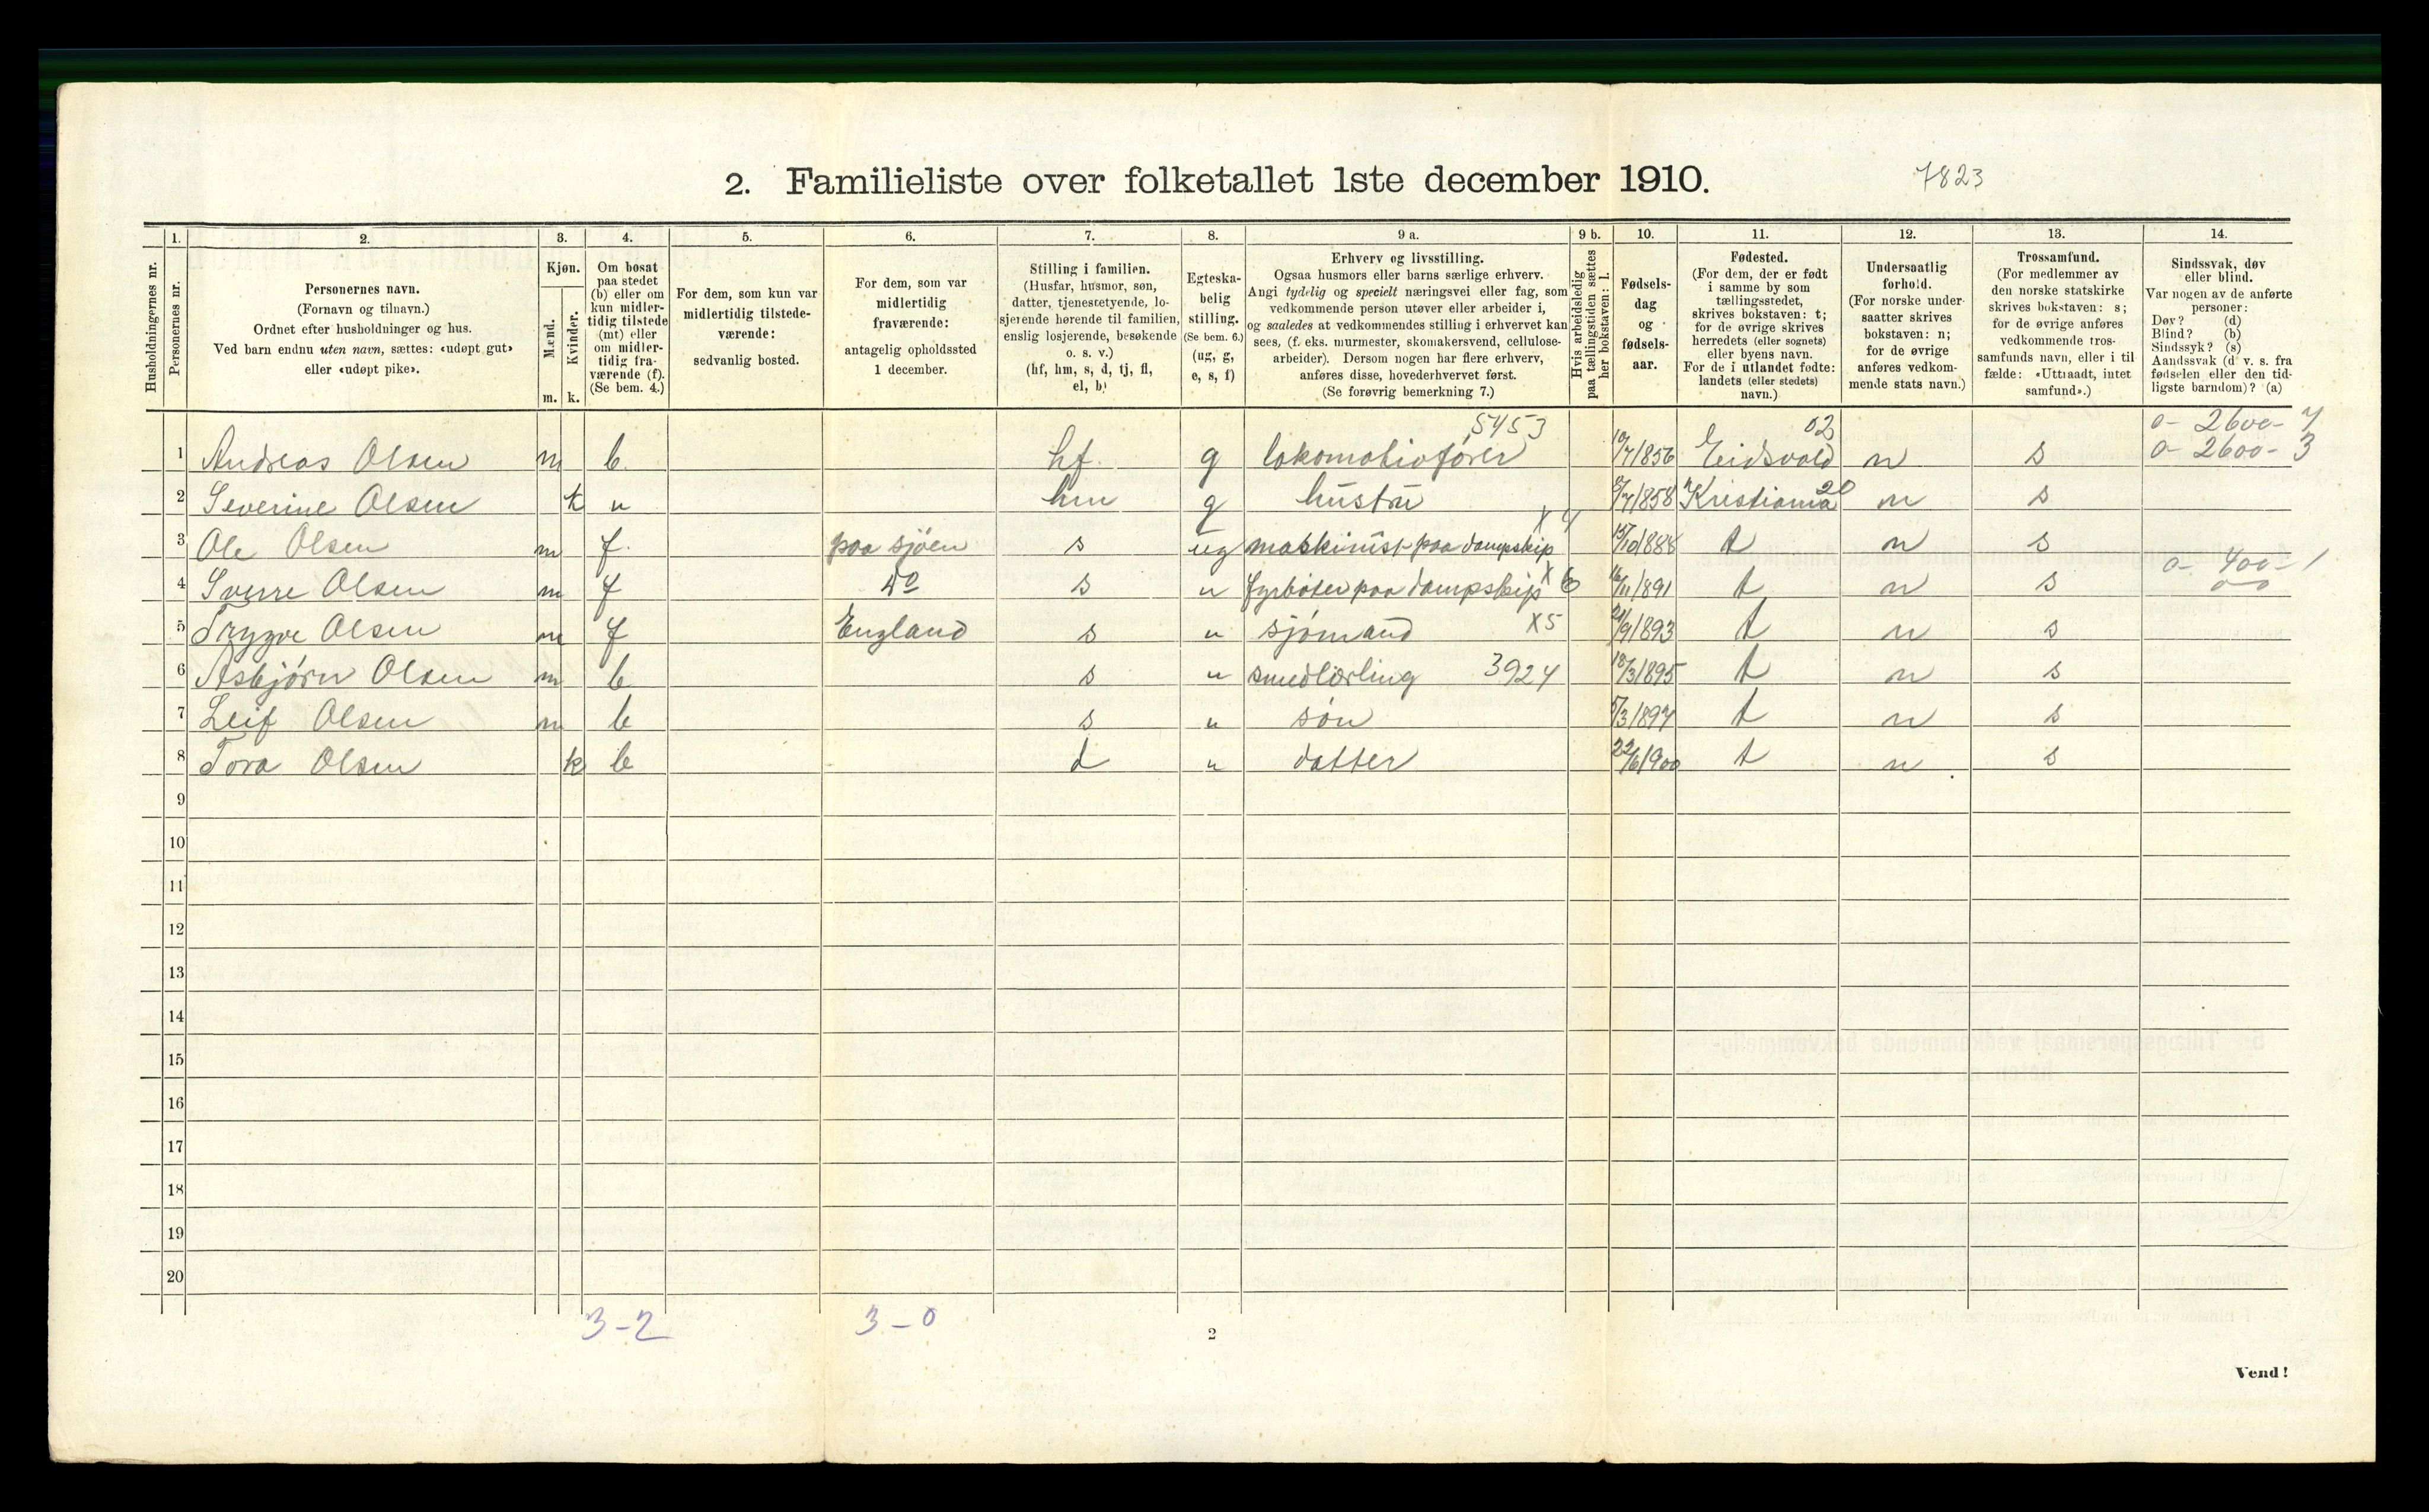 2. Familieliste over folketallet 1ste december 1910. 7823
1. 2. 3. 4. 5. 6. 7. 8. 9 a. 9 b. 10. 11. 12. 13. 14.
Husholdningernes nr.
Personernes nr.
Personernes navn.
(Fornavn og tilnavn.)
Ordnet efter husholdninger og hus.
Ved barn endnu uten navn, sættes: «udøpt gut»
eller «udøpt pike».
Kjøn.
Mænd.
Kvinder.
m. k.
Om bosat
paa stedet
(b) eller om
kun midler-
tidig tilstede
(mt) eller
om midler-
tidig fra-
værende (f).
(Se bem. 4.)
For dem, som kun var
midlertidig tilstede-
værende:
sedvanlig bosted.
For dem, som var
midlertidig
fraværende:
antagelig opholdssted
1 december.
Stilling i familien.
(Husfar, husmor, søn,
datter, tjenestetyende, lo-
sjerende hørende til familien,
enslig losjerende, besøkende
o. s. v.)
(hf, hm, s, d, tj, fl,
el, b)
Egteska-
belig
stilling.
(Se bem. 6.)
(ug, g,
e, s, f)
Erhverv og livsstilling.
Ogsaa husmors eller barns særlige erhverv.
Angi tydelig og specielt næringsvei eller fag, som
vedkommende person utøver eller arbeider i,
og saaledes at vedkommendes stilling i erhvervet kan
sees, (f. eks. murmester, skomakersvend, cellulose-
arbeider). Dersom nogen har flere erhverv,
anføres disse, hovederhvervet først.
(Se forøvrig bemerkning 7.)
Hvis arbeidsledig
paa tællingstiden sættes
her bokstaven: l.
Fødsels-
dag
og
fødsels-
aar.
Fødested.
(For dem, der er født
i samme by som
tællingsstedet,
skrives bokstaven: t;
for de øvrige skrives
herredets (eller sognets)
eller byens navn.
For de i utlandet fødte:
landets (eller stedets)
navn.)
Undersaatlig
forhold.
(For norske under-
saatter skrives
bokstaven: n;
for de øvrige
anføres vedkom-
mende stats navn.)
Trossamfund.
(For medlemmer av
den norske statskirke
skrives bokstaven: s;
for de øvrige anføres
vedkommende tros-
samfunds navn, eller i til
fælde: «Uttraadt, intet
samfund».)
Sindssvak, døv
eller blind.
Var nogen av de anførte
personer:
Døv? (d)
Blind? (b)
Sindssyk? (s)
Aandssvak (d. v. s. fra
fødselen eller den tid-
ligste barndom)? (a)
5453 02 0- 2600- 7
1 Andreas Olsen m b. hf. g lokomotivfører 10/7/856 Eidsvold n s 0- 2600- 3
2 Severine Olsen k " hm g hustru 8/7/858 Kristiania 20 n s
3 Ole Olsen m f. paa sjöen s ug maskinist paa dampskip x 4 15/10/888 t n s
4 Sverre Olsen m f do s " fyrböter paa dampskip x 6 16/11/891 t n s 0- 400- 1
5 Trygve Olsen m f England s " sjømand x5 21/9/893 t n s
6 Asbjørn Olsen m b s " smedlærling 3924 18/3/895 t n s
7 Leif Olsen m b s " søn 5/3/897 t n s
8 Tora Olsen k b d " datter 22/6/900 t n s
9
10
11
12
13
14
15
16
17
18
19
20
3-2 3-0
2
Vend!